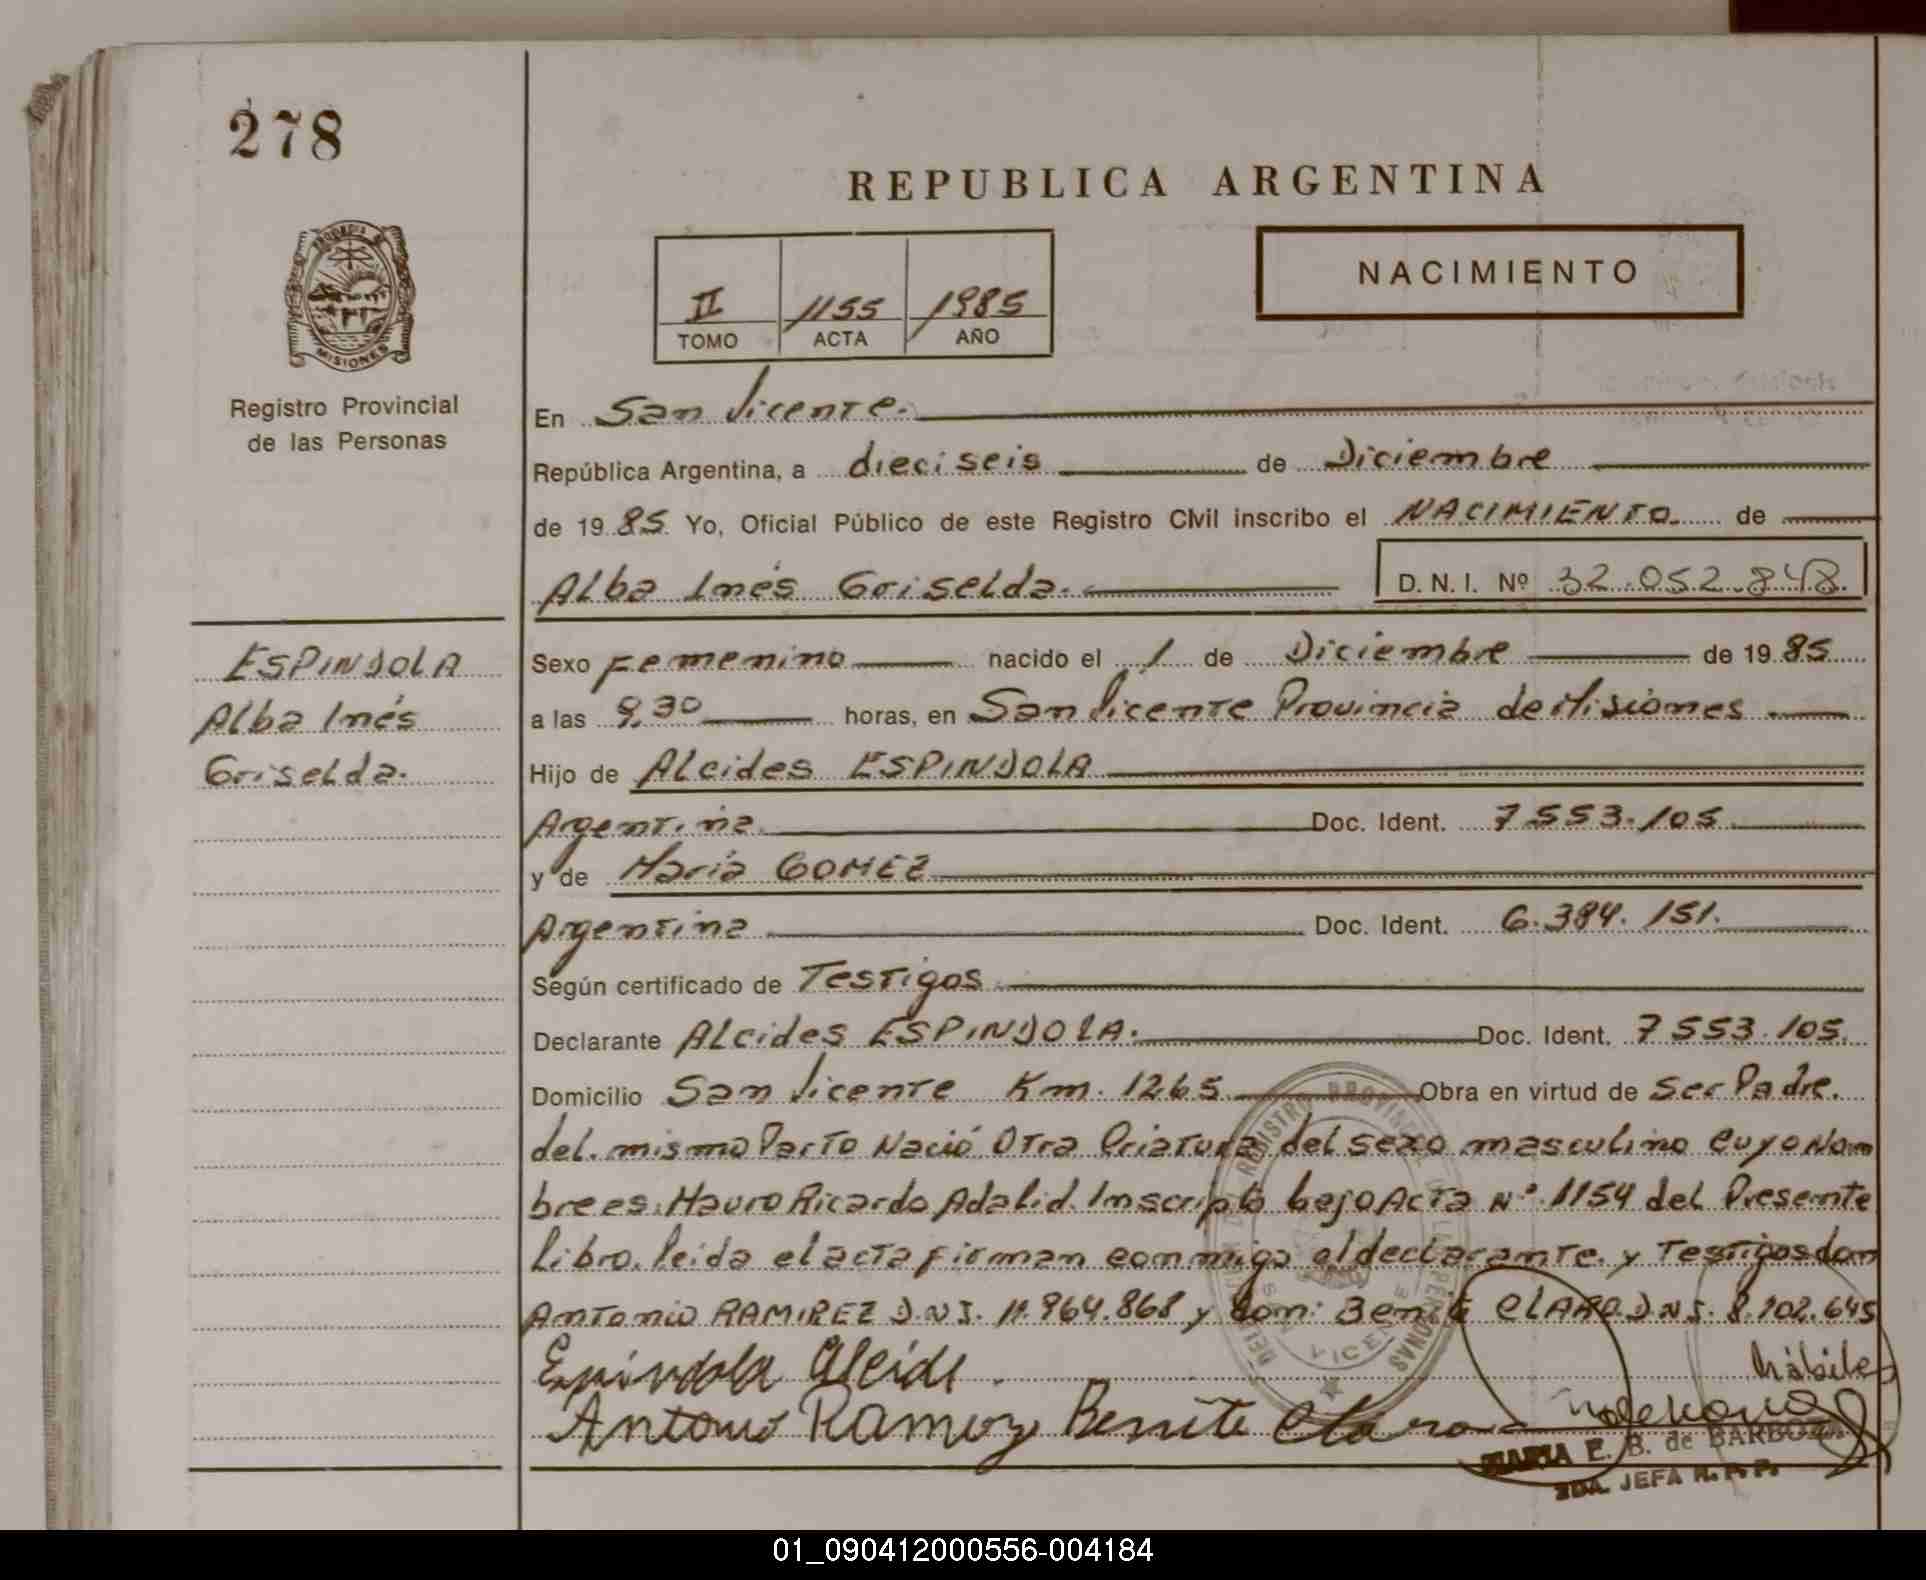 278
REPUBLICA ARGENTINA
PROVINCIA DE
MISIONES
Registro Provincial
de las Personas
NACIMIENTO
II 1155 1985
TOMO ACTA AÑO
En San Vicente.
República Argentina, a dieciseis de Diciembre
de 1985 Yo, Oficial Público de este Registro Civil inscribo el NACIMIENTO de
Alba Inés Griselda. D. N. I. Nº 32.052.848.
ESPINDOLA
Alba Inés
Griselda.
Sexo Femenino nacido el 1 de Diciembre de 1985
a las 9,30 horas, en San Vicente Provincia de Misiones
Hijo de Alcides ESPINDOLA
Argentina Doc. Ident. 7553.105
y de María GOMEZ
Argentina Doc. Ident. 6.384.151.
Según certificado de Testigos
Declarante Alcides ESPINDOLA. Doc. Ident. 7553.105.
Domicilio San Vicente Km. 1265 Obra en virtud de Ser Padre.
del mismo Parto Nació Otra Criatura del sexo masculino cuyo Nom
bre es: Mauro Ricardo Adalid. Inscripto bajo Acta Nº 1154 del Presente
libro. leida el acta firman conmigo el declarante. y Testigos don
Antonio RAMIREZ D.N.I. 11.964.868 y don: Benite CLARO D.N.I. 8.102.645
hábiles
Espindola Alcide
Antonio Ramirez Benite Claro
MARIA E. B. de BARBOZA
2DA. JEFA R. P. P.
01_090412000556-004184